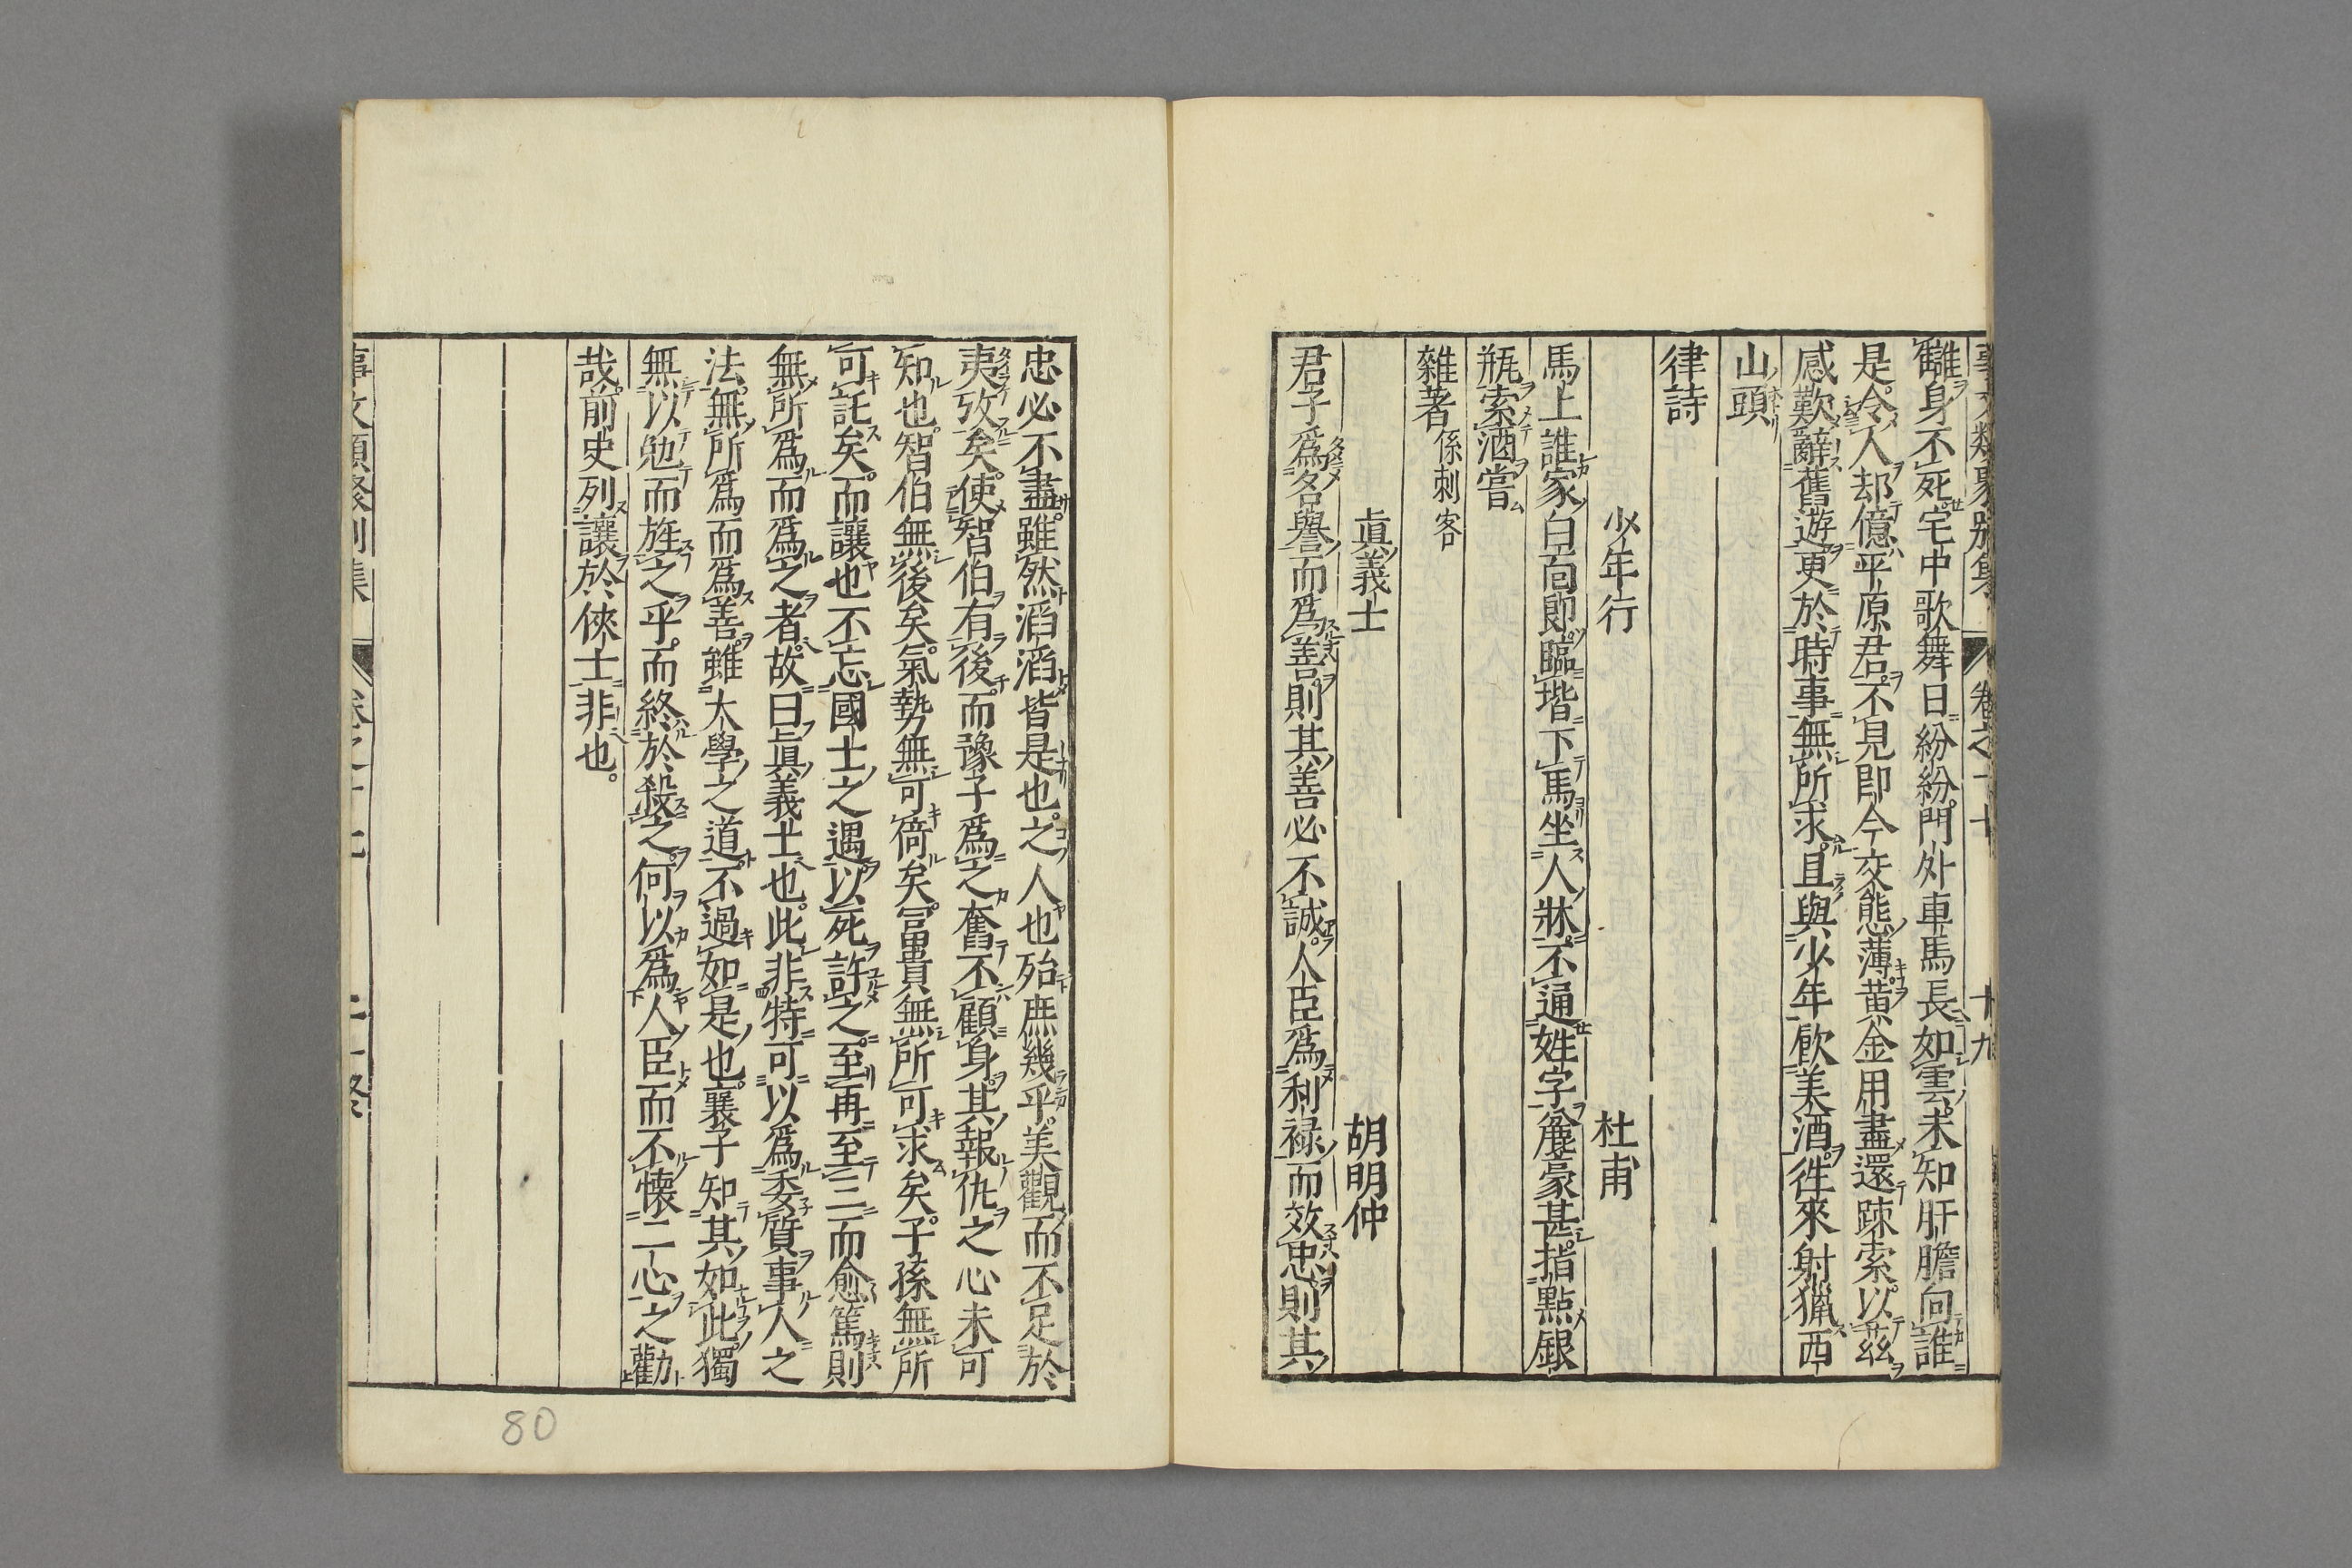 事文類聚別集 卷之二十 十九
讎身不死宅中歌舞日紛紛門外車馬長如雲未知肝膽向誰
是令人却憶平原君不見即今交態薄黃金用盡還踈索以茲
感歎辭舊遊更於時事無所求且與少年飮美酒徃來射獵西
山頭
律詩
少年行 杜甫
馬上誰家白面郎臨堦下馬坐人牀不通姓字麄豪甚指點銀
瓶索酒嘗
雜著 係刺客
眞義士 胡明仲
君子爲名譽而爲善則其善必不誠人臣爲利祿而效忠則其
忠必不盡雖然滔滔皆是也之人也殆庶幾乎美觀而不足於
夷攷矣使智伯有後而豫子爲之奮不顧身其報仇之心未可
知也智伯無後矣氣勢無可倚矣冨貴無所可求矣子孫無所
可託矣而讓也不忘國士之遇以死許之至再至三而愈篤則
無所爲而爲之者故曰眞義士也此非特可以爲委質事人之
法無所爲而爲善雖大學之道不過如是也襄子知其如此獨
無以勉而旌之乎而終於殺之何以爲人臣而不懷二心之勸
哉前史列讓於俠士非也。
事文類聚別集
80